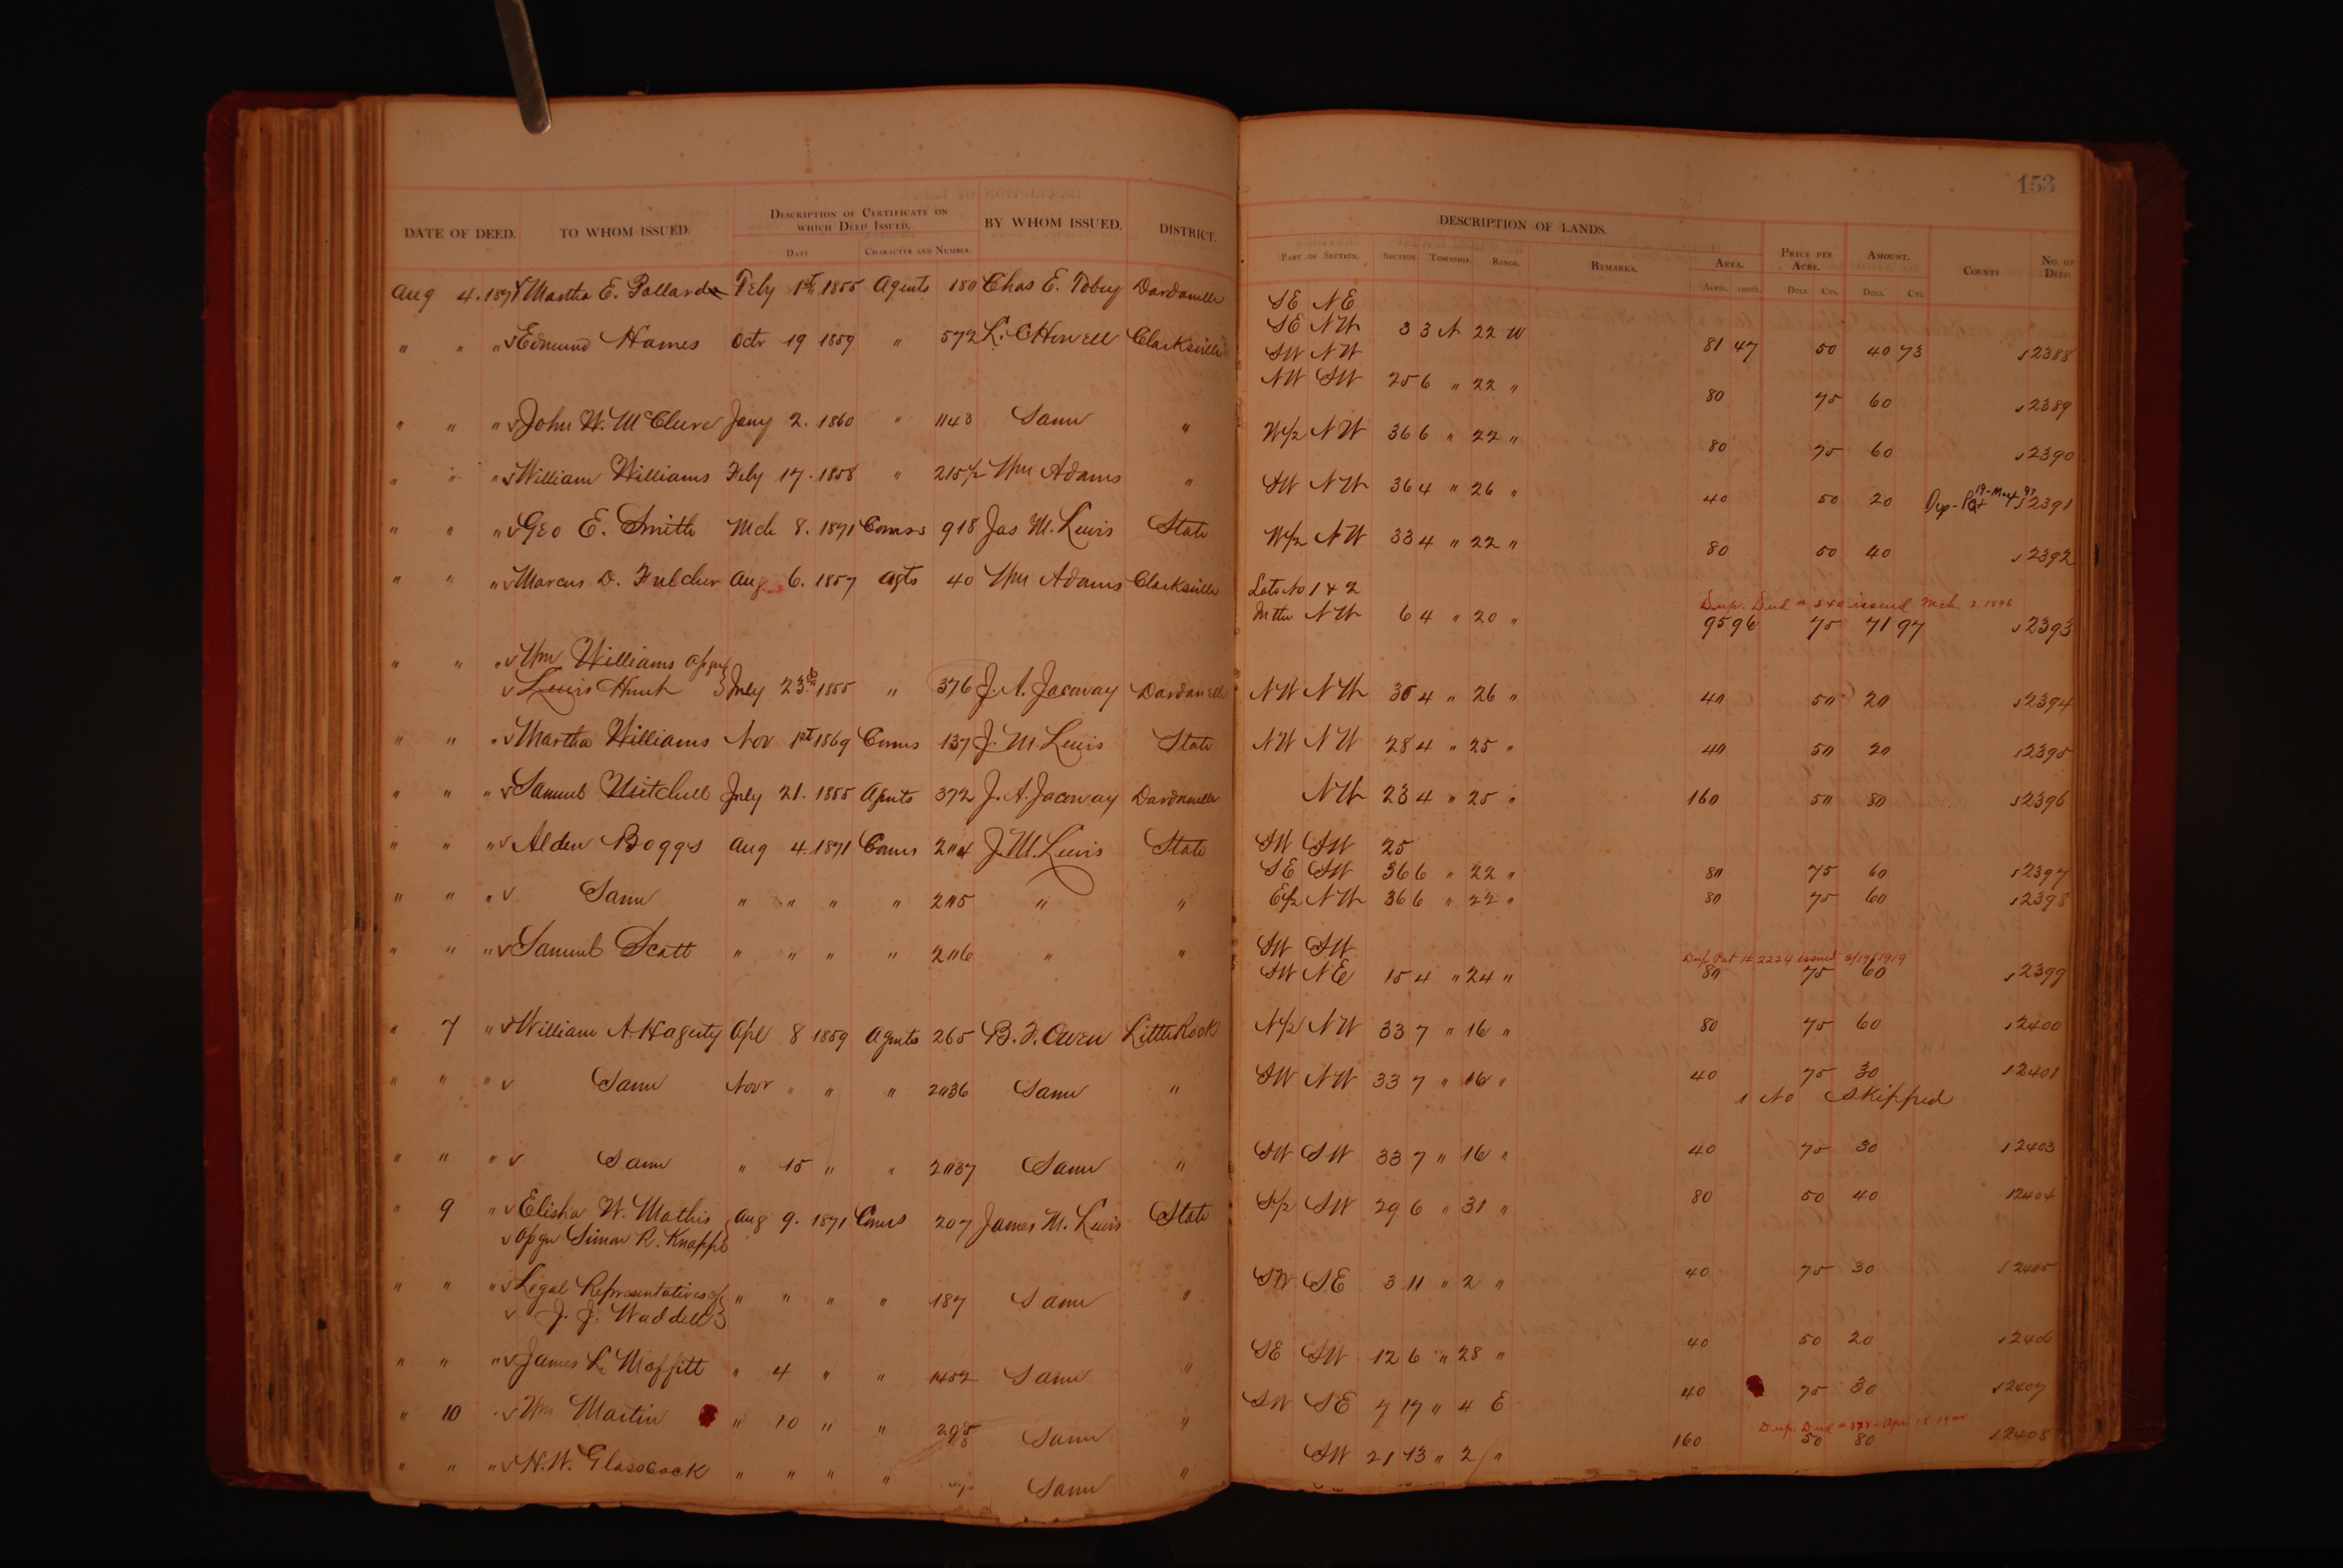 153
DATE OF DEED. TO WHOM ISSUED. DESCRIPTION OF CERTIFICATE ON WHICH DEED ISSUED. BY WHOM ISSUED. DISTRICT. DESCRIPTION OF LANDS. PRICE PER ACRE. AMOUNT. COUNTY NO. OF DEED.
DATE CHARACTER AND NUMBER. PART OF SECTION. SECTION. TOWNSHIP. RANGE. REMARKS. AREA.
ACRES. 100TH. DOLL. CTS. DOLL. CTS.
Aug 4. 1871 Martha E. Pollard Feby 1st 1855 Agents 180 Chas E. Tobey Dardanelle SE NE
SE NW 3 3 N 22 W 81 47 50 40 73 12388
" " " Edmund Hames Octr 19 1859 " 572 L. C. Howell Clarksville SW NW
NW SW 25 6 " 22 " 80 75 60 12389
" " " John W. McClure Jany 2. 1860 " 1143 Same " W/2 NW 36 6 " 22 " 80 75 60 12390
" " " William Williams Feby 17. 1858 " 215 1/2 Wm Adams " SW NW 36 4 " 26 " 40 50 20 Dup-Pat 19-May 97 12391
" " " Geo E. Smith Mch 8. 1871 Comrs 918 Jas M. Lewis State W/2 NW 33 4 " 22 " 80 50 40 12392
" " " Marcus D. Fulcher Aug 6. 1857 Agts 40 Wm Adams Clarksville Lots No 1 & 2
Dup. Deed issued Mch. 2 1896
NW 6 4 " 20 " 95 96 75 71 97 12393
" " " Wm Williams
Lewis Hunt July 23d 1855 " 376 J. A. Jacoway Dardanelle NW NW 35 4 " 26 " 40 50 20 12394
" " " Martha Williams Nov 1st 1869 Comrs 137 J. M. Lewis State NW NW 28 4 " 25 " 40 50 20 12395
" " " Samuel Mitchell July 21. 1855 Agents 372 J. A. Jacoway Dardanelle NW 23 4 " 25 " 160 50 80 12396
" " " Alden Boggs Aug 4. 1871 Comrs 204 J. M. Lewis State SW SW 25
SE SW 36 6 " 22 " 80 75 60 12397
" " " Same " " " " 205 " " E/2 NW 36 6 " 22 " 80 75 60 12398
" " " Samuel Scott " " " " 206 " " SW SW
Dup. Pat # 2224 issued 2/19/1919
SW NE 15 4 " 24 " 80 75 60 12399
" 7 " William A. Hagerty Apl 8 1859 Agents 265 B. F. Owen Little Rock N/2 NW 33 7 " 16 " 80 75 60 12400
" " " Same Novr " " " 2036 Same " SW NW 33 7 " 16 " 40 75 30 12401
1 No Skipped
" " " Same " 15 " " 2037 Same " SW SW 33 7 " 16 " 40 75 30 12403
" 9 " Elisha W. Mathis Aug 9. 1871 Comrs 207 James M. Lewis State S/2 SW 29 6 " 31 " 80 50 40 12404
Simon R. Knapp
" " " Legal Representatives of " " " " 187 Same " SW SE 3 11 " 2 " 40 75 30 12405
J. J. Waddell
" " " James L. Moffitt " 4 " " 1452 Same " SE SW 12 6 " 28 " 40 50 20 12406
" 10 " Wm Martin " 10 " " Same " SW SE 7 17 " 4 E 40 75 30 12407
Dup. Deed # 378 - Apr. 18. 1900
" " " N. W. Glasscock " " " " Same " SW 21 13 " 2 " 160 50 80 12408